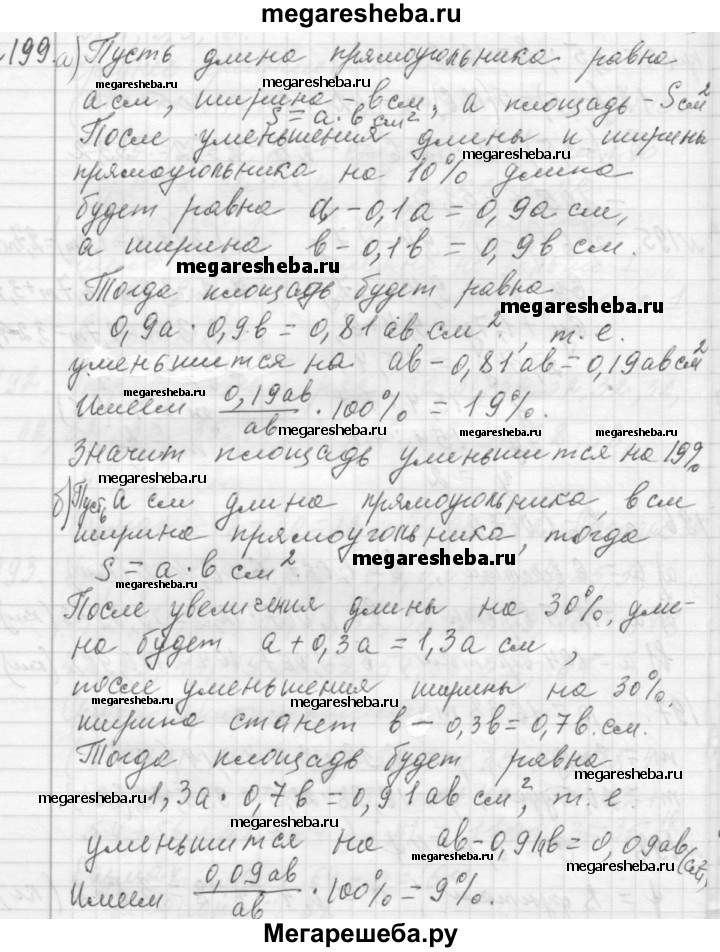 megaresheba.ru
199 а) Пусть длина прямоугольника равна
megaresheba.ru megaresheba.ru
а см, ширина - в см, а площадь - S см²
S = а · в см²
После уменьшения длины и ширины
megaresheba.ru
прямоугольника на 10% длина
megaresheba.ru
будет равна а - 0,1а = 0,9а см,
а ширина в - 0,1в = 0,9в см.
megaresheba.ru
Тогда площадь будет равна
megaresheba.ru
0,9а · 0,9в = 0,81ав см², т.е.
megaresheba.ru
уменьшится на ав - 0,81ав = 0,19ав см²
megaresheba.ru
Имеем 0,19ав/ав · 100% = 19%.
megaresheba.ru megaresheba.ru
Значит площадь уменьшится на 19%
б) Пусть а см длина прямоугольника, в см
ширина прямоугольника, тогда
megaresheba.ru
S = а · в см².
megaresheba.ru
После увеличения длины на 30%, дли-
на будет а + 0,3а = 1,3а см,
после уменьшения ширины на 30%,
megaresheba.ru megaresheba.ru
ширина станет в - 0,3в = 0,7в см.
Тогда площадь будет равна
megaresheba.ru 1,3а · 0,7в = 0,91ав см², т.е.
уменьшится на ав - 0,91ав = 0,09ав (см²)
megaresheba.ru
Имеем 0,09ав/ав · 100% = 9%.
megaresheba.ru
Мегарешеба.ру